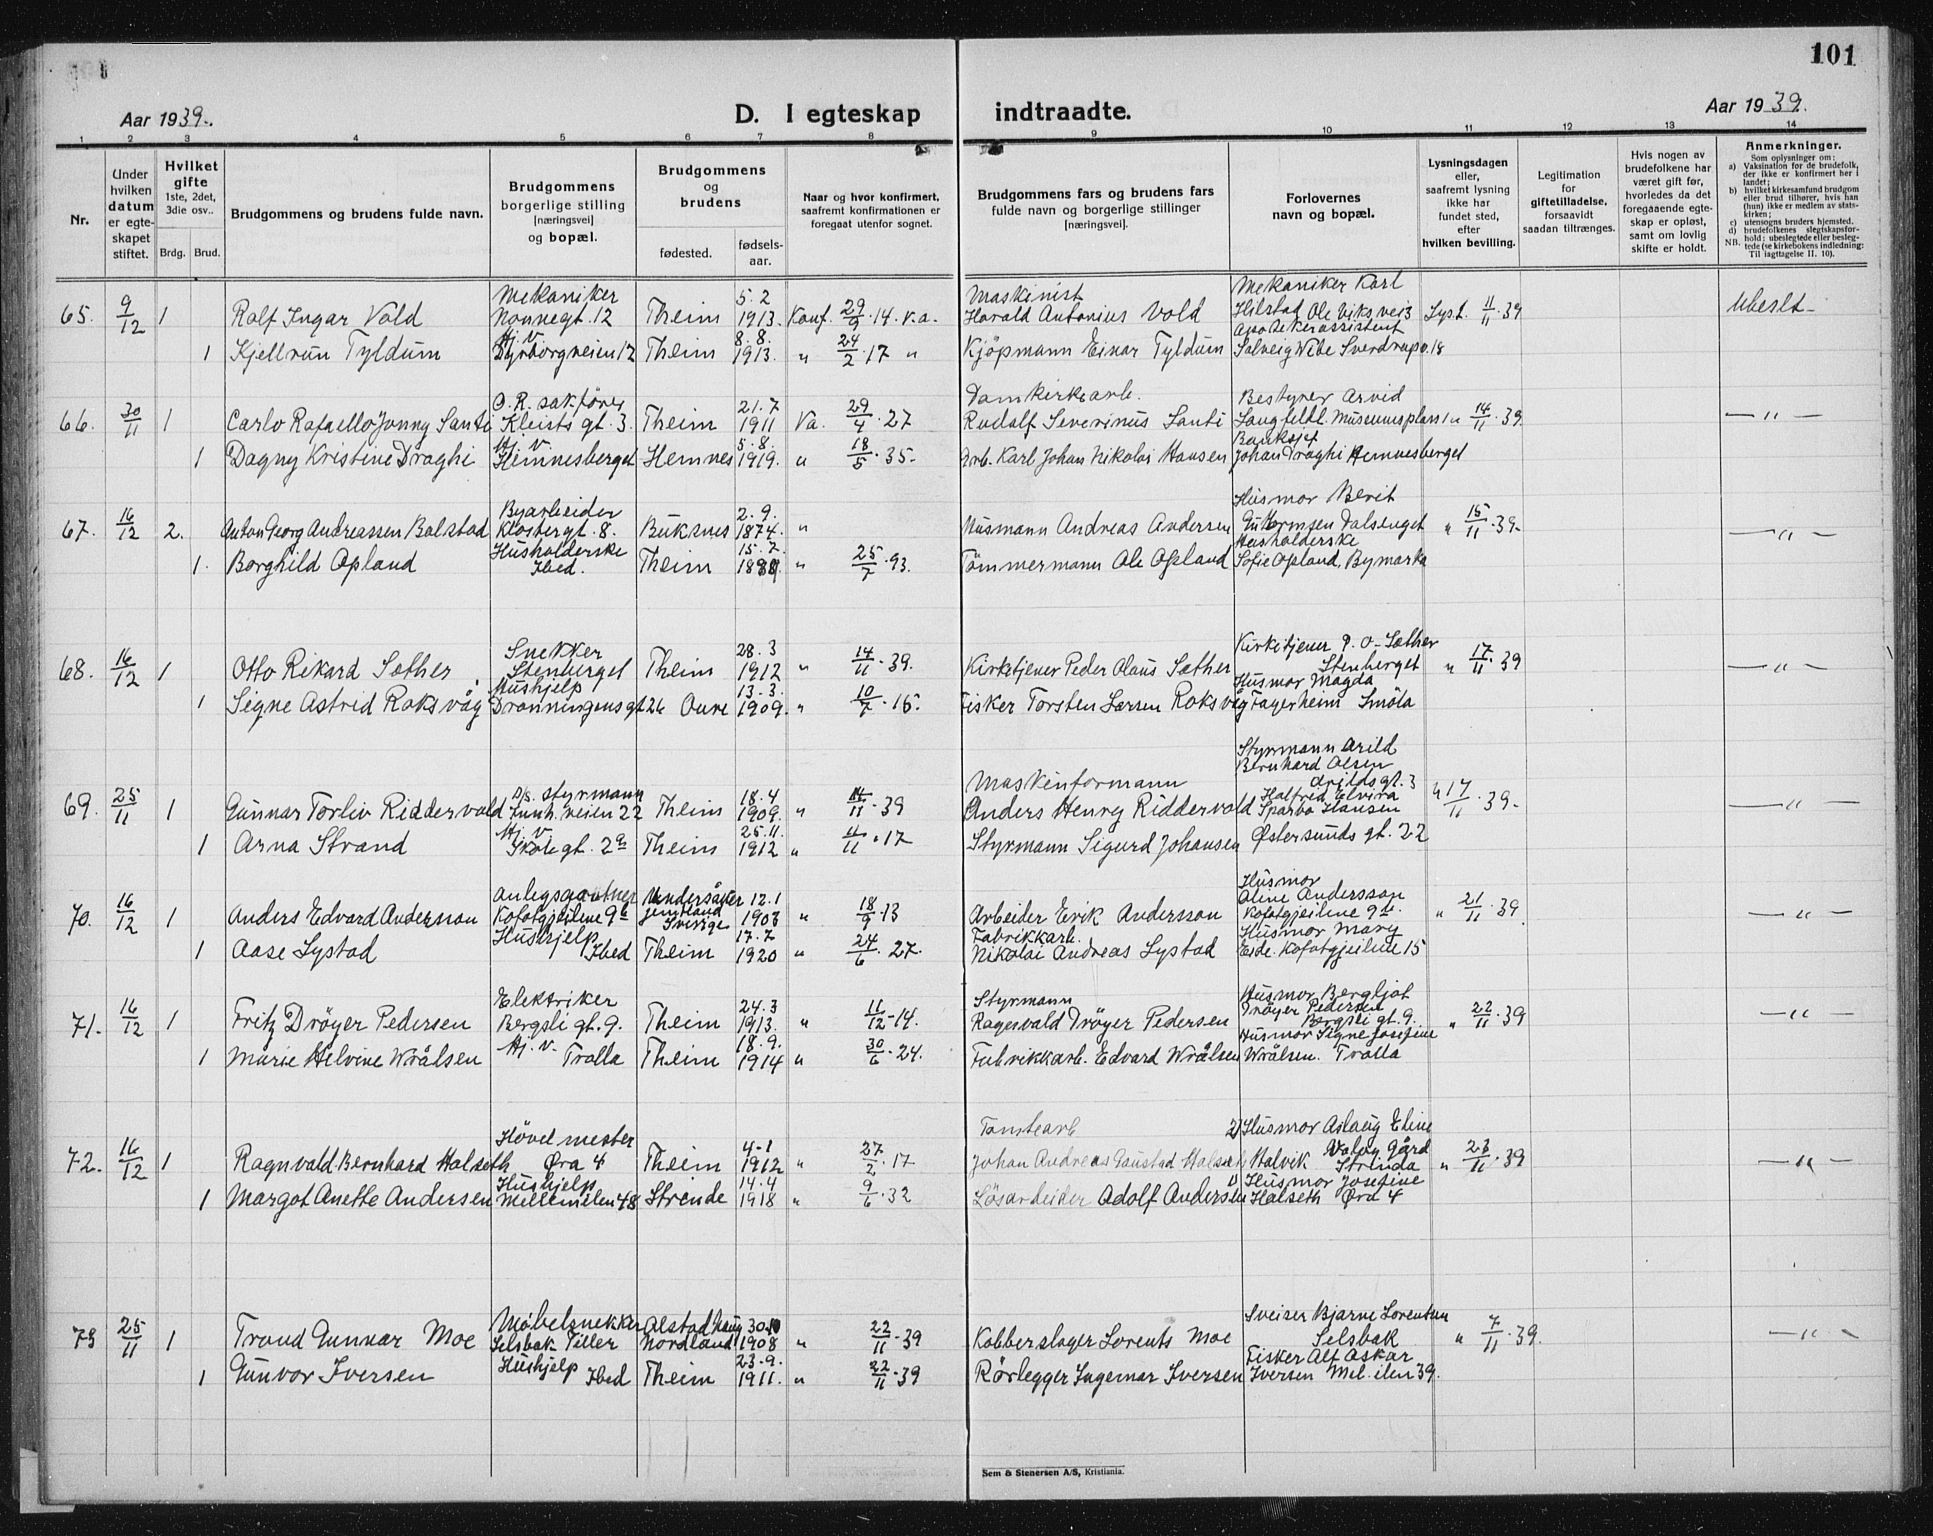 101
Aar 1939.
D. I egteskap indtraadte.
Aar 1939.
1 2 3 4 5 6 7 8 9 10 11 12 13 14
Nr.
Under hvilken datum er egteskapet stiftet.
Hvilket gifte 1ste, 2det, 3die osv..
Brdg. Brud.
Brudgommens og brudens fulde navn.
Brudgommens borgerlige stilling [næringsvei] og bopæl.
Brudgommens og brudens
fødested. fødselsaar.
Naar og hvor konfirmert, saafremt konfirmationen er foregaat utenfor sognet.
Brudgommens fars og brudens fars fulde navn og borgerlige stillinger [næringsvei].
Forlovernes navn og bopæl.
Lysningsdagen eller, saafremt lysning ikke har fundet sted, efter hvilken bevilling.
Legitimation for giftetilladelse, forsaavidt saadan tiltrænges.
Hvis nogen av brudefolkene har været gift før, hvorledes da det foregaaende egteskap er opløst, samt om lovlig skifte er holdt.
Anmerkninger.
Som oplysninger om:
a) Vaksination for de brudefolk, der ikke er konfirmert her i landet;
b) hvilket kirkesamfund brudgom eller brud tilhører, hvis han (hun) ikke er medlem av statskirken;
c) utensogns bruders hjemsted.
d) brudefolkenes slegtskapsforhold: ubeslegtede eller beslegtede (se kirkebokens indledning:
NB. Til iagttagelse II. 10).
65. 9/12 1 Rolf Ingar Vold Mekaniker Nonnegt. 12 Theim 5.2 1913. Konf. 29/9.14. V.a. Maskinist Harald Antonius Vold Mekaniker Karl Hilstad Ole Viks vei 3 Lyst. 11/11 39 Ubeslt
1 Kjellrun Tyldum Hj. v. Dyrborgveien 12 Theim 8.8. 1913. " 24/2.17 " Kjöpmann Einar Tyldum Apotekerassistent Solveig Wibe Sverdrups v. 18
66. 30/11 1 Carlo Rafaello Jonny Santi O.R. sakförer Kleists gt. 3. Theim 21.7 1911 Va. 29/4.27 Domkirkearb. Rudolf Severinus Santi Bestyrer Arvid Langfeldt. Museumsplass 1 " 14/11 39 — " —
1 Dagny Kristine Draghi Hj. v. Hemnesberget Hemnes 5.8. 1919. " 18/5.35. Arb. Karl Johan Nikolai Hansen Banksjef Johan Draghi Hemnesberget
67. 16/12 2. Anton Georg Andreassen Balstad Byarbeider Klostergt. 8. Buksnes 2.9. 1874. " Husmann Andreas Andersen Husmor Berit Guttormsen Dalsenget " 15/11.39. — " —
1. Borghild Opland Husholderske Ibed. Theim 15.7. " 25/7.93. Tömmermann Ole Opland Husholderske Sofie Opland, Bymarka
68. 16/12 1 Otto Rikard Sæther Snekker Stenberget Theim 28.3 1912 " 14/11.39. Kirketjener Peder Olaus Sæther Kirketjener P.O. Sæther Stenberget " 17/11.39 — " —
1 Signe Astrid Roksvåg Hushjelp Dronningensgt 26 Oure 13.3. 1909. " 10/7.15. Fisker Torsten Larsen Roksvåg Husmor Magda Fagerheim Smöla
69. 25/11 1 Gunnar Torliv Riddervold D/S. styrmann veien 22 Theim 18.4 1909. " 14/11.39 Maskinformann Anders Henry Riddervold Styrmann Arild Bernhard Olsen Arildsgt. 3 " 17/11.39. — " —
1 Arna Strand Hj. v. Skolegt. 2a Theim 25.11. 1912 " 4/11.17 Styrmann Sigurd Johansen Halfred Elvira Sparbo Hansen Østersunds gt. 22
70. 16/12 1 Anders Edvard Andersson Anlegsgartner Kofotgjeilene 9b Undersåker Jemtland Sverige 12.1 1903 " 18/9.13 Arbeider Erik Andersson Husmor Aline Andersson Kofotgjeilene 9b. " 21/11.39 — " —
1 Aase Lystad Hushjelp Ibed Theim 17.7 1920 " 24/6.27. Fabrikkarb. Nikolai Andreas Lystad Husmor Mary Eide. Kofotgjeilene 15
71. 16/12 1 Fritz Dröyer Pedersen Elektriker Bergsligt. 9. Theim 24.3 1913. " 16/12.14. Styrmann Ragnvald Dröyer Pedersen Husmor Bergljot Dröyer Pedersen Bergsli gt. 9. " 22/11.39 — " —
1 Marie Helvine Wrålsen Hj. v. Trolla Theim 18.9. 1914 " 30/6.24. Fabrikkarb. Edvard Wrålsen Husmor Signe Josefine Wrålsen. Trolla
72. 16/12 1 Ragnvald Bernhard Halseth Hövelmester Øra 4 Theim 4.1 1912 " 27/2.17 Tomtearb Johan Andreas Gaustad Halseth 2) Husmor Aslaug Eline Halvik Valöy Gård Strinda " 23/11.39 — " —
1 Margot Anette Andersen Hushjelp Mellemilen 48 Strinde 14.4 1918 " 9/6.32 Lösarbeider Adolf Andersen 1) Husmor Josefine Halseth Øra 4
73 25/11 1 Trond Gunnar Moe Möbelsnekker Selsbak Tiller Alstadhaug Nordland 30.10 1908 " 22/11.39 Kobberslager Lorents Moe Sveiser Bjarne Lorentsen Selsbak " 7/11.39. — " —
1 Gunvor Iversen Hushjelp Ibed Theim 23.9. 1911. " 22/11.39 Rörlegger Ingemar Iversen Fisker Alf Oskar Iversen Mel. ilen 39.
Sem & Stenersen A/S, Kristiania.